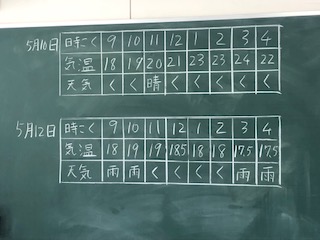 5月10日 時こく 9 10 11 12 1 2 3 4
気温 18 19 20 21 23 23 24 22
天気 く く 晴 く く く く く
5月12日 時こく 9 10 11 12 1 2 3 4
気温 18 19 19 18.5 18 18 17.5 17.5
天気 雨 雨 く く く く 雨 雨